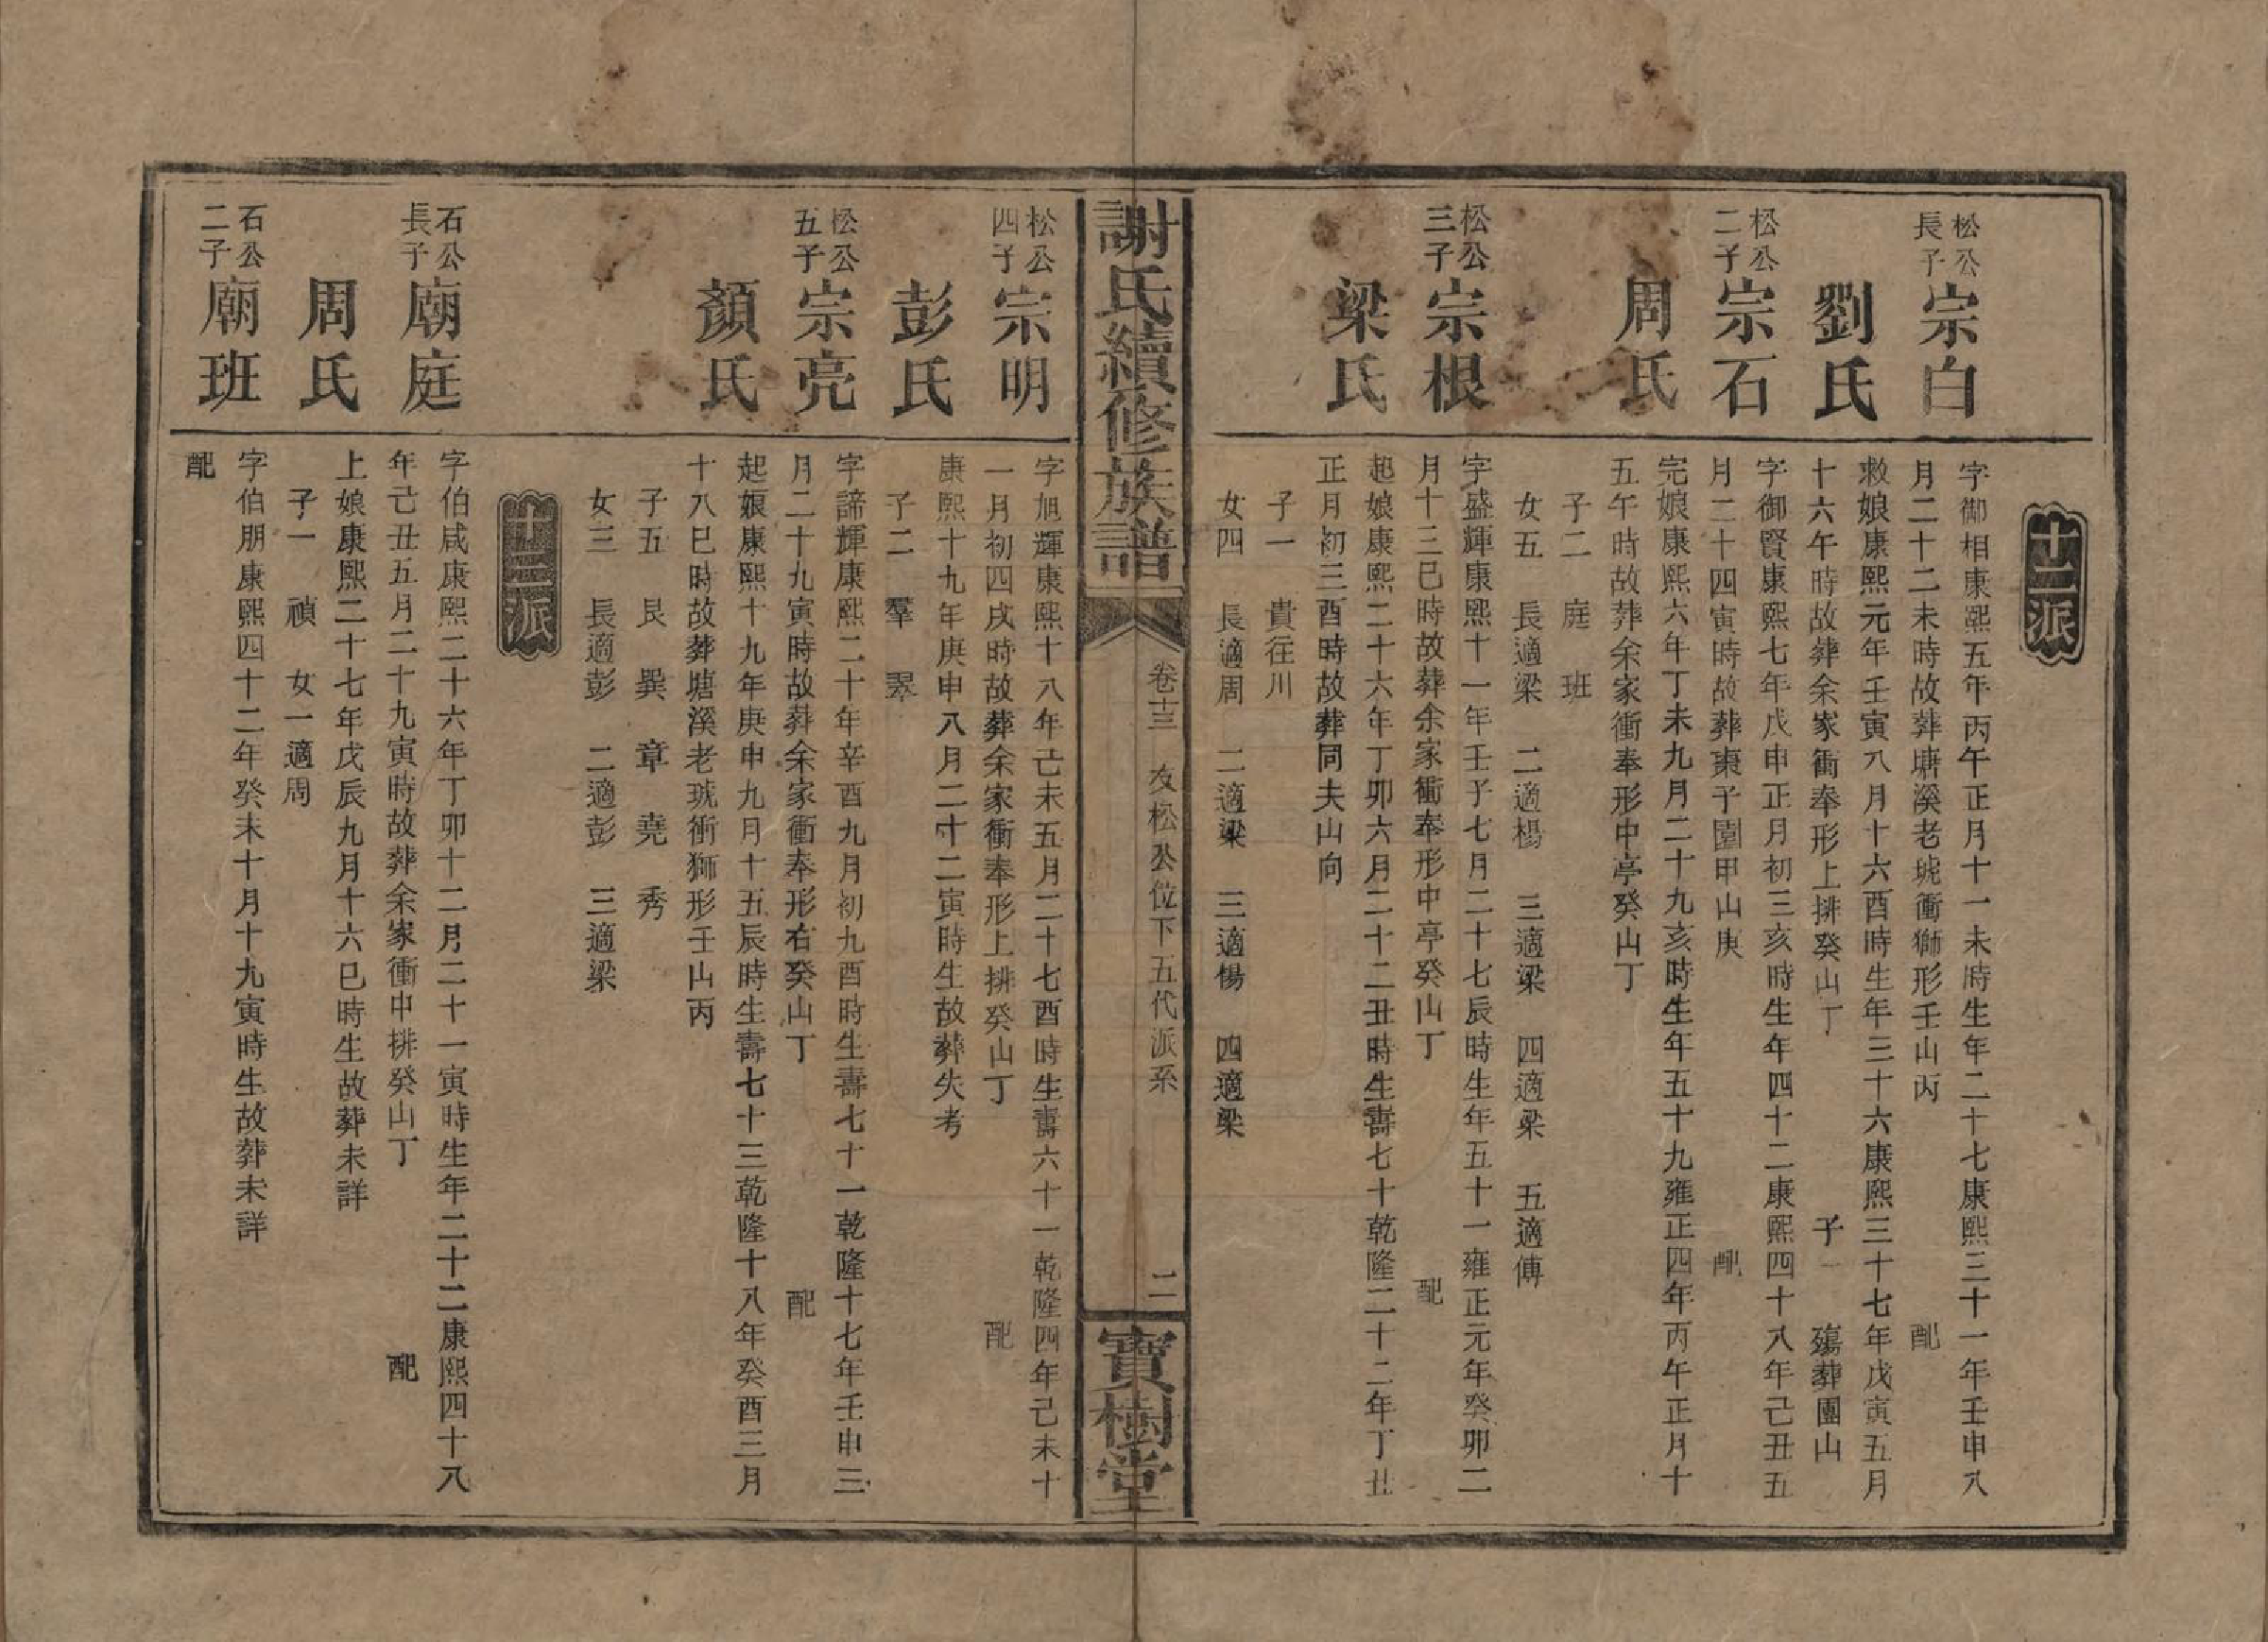 十二派
松公長子 宗白
劉氏
松公二子 宗石
周氏
松公三子 宗根
梁氏
字御相康熙五年丙午正月十一未時生年二十七康熙三十一年壬申八
月二十二未時故葬塘溪老琥衝獅形壬山丙 配
救娘康熙元年壬寅八月十六酉時生年三十六康熙三十七年戊寅五月
十六午時故葬余家衝奉形上排癸山丁 子一 殤葬團山
字御賢康熙七年戊申正月初三亥時生年四十二康熙四十八年己丑五
月二十四寅時故葬棗子園甲山庚 配
完娘康熙六年丁未九月二十九亥時生年五十九雍正四年丙午正月十
五午時故葬余家衝奉形中亭癸山丁
子二 庭 班
女五 長適梁 二適楊 三適梁 四適梁 五適傅
字盛輝康熙十一年壬子七月二十七辰時生年五十一雍正元年癸卯二
月十三巳時故葬余家衝奉形中亭癸山丁 配
起娘康熙二十六年丁卯六月二十二丑時生壽七十乾隆二十二年丁丑
正月初三酉時故葬同夫山向
子一 貴往川
女四 長適周 二適梁 三適楊 四適梁
謝氏續修族譜
卷十三 友松公位下五代派系 二
寶樹堂
松公四子 宗明
彭氏
松公五子 宗亮
顏氏
字旭輝康熙十八年己未五月二十七酉時生壽六十一乾隆四年己未十
一月初四戌時故葬余家衝奉形上排癸山丁 配
康熙十九年庚申八月二十二寅時生故葬失考
子二 羣 翠
字諦輝康熙二十年辛酉九月初九酉時生壽七十一乾隆十七年壬申三
月二十九寅時故葬余家衝奉形右癸山丁 配
起娘康熙十九年庚申九月十五辰時生壽七十三乾隆十八年癸酉三月
十八巳時故葬塘溪老琥衝獅形壬山丙
子五 艮 巽 章 堯 秀
女三 長適彭 二適彭 三適梁
十三派
石公長子 廟庭
周氏
石公二子 廟班
字伯咸康熙二十六年丁卯十二月二十一寅時生年二十二康熙四十八
年己丑五月二十九寅時故葬余家衝中排癸山丁 配
上娘康熙二十七年戊辰九月十六巳時生故葬未詳
子一 禎 女一適周
字伯朋康熙四十二年癸未十月十九寅時生故葬未詳
配